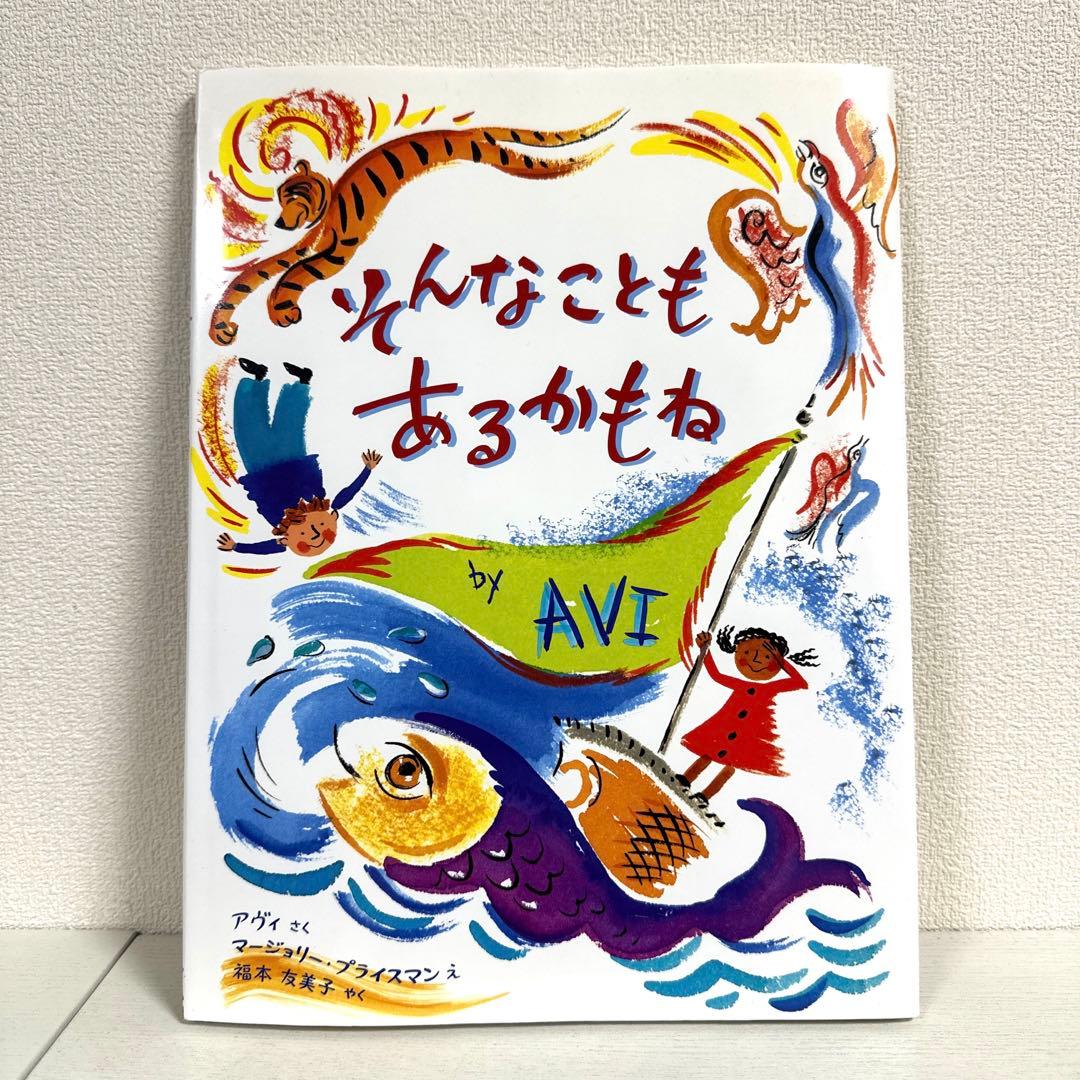 そんなことも
あるかもね
by AVI
アヴィ さく
マージョリー・プライスマン え
福本 友美子 やく